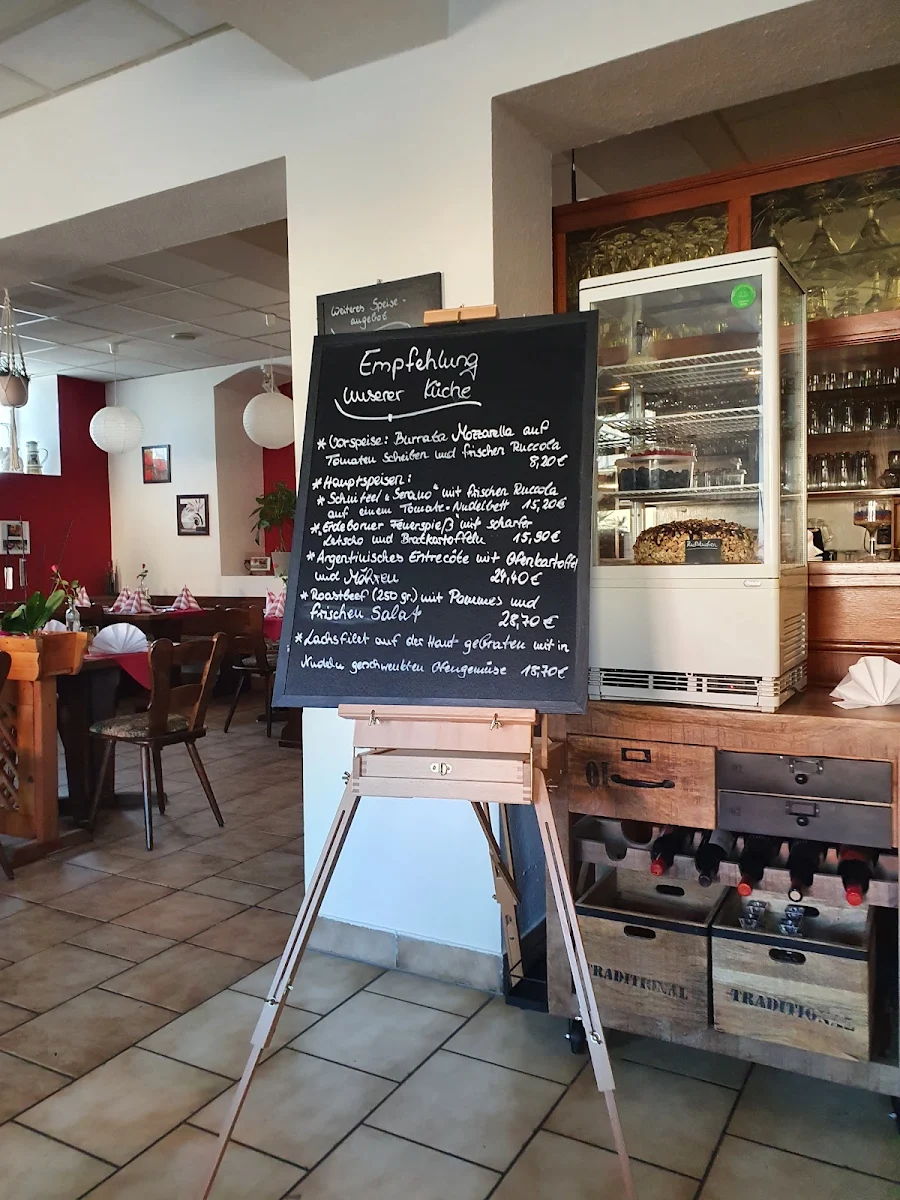 Weiteres Speise-
angebot
Empfehlung
unserer Küche
* Vorspeise: Burrata Mozzarella auf
Tomaten Scheiben und frischen Ruccola
8,20€
* Hauptspeisen:
* Schnitzel "Serano" mit frischen Ruccola
auf einem Tomate-Nudelbett 15,20€
* Erdeborner Feuerspieß mit scharfer
Letscho und Bratkartoffeln 15,90€
* Argentinisches Entrecôte mit Ofenkartoffel
und Möhren 24,40€
* Roastbeef (250 gr.) mit Pommes und
frischen Salat 28,70€
* Lachsfilet auf der Haut gebraten mit in
Nudeln geschwenkten Ofengemüse 18,70€
TRADITIONAL
TRADITIONAL